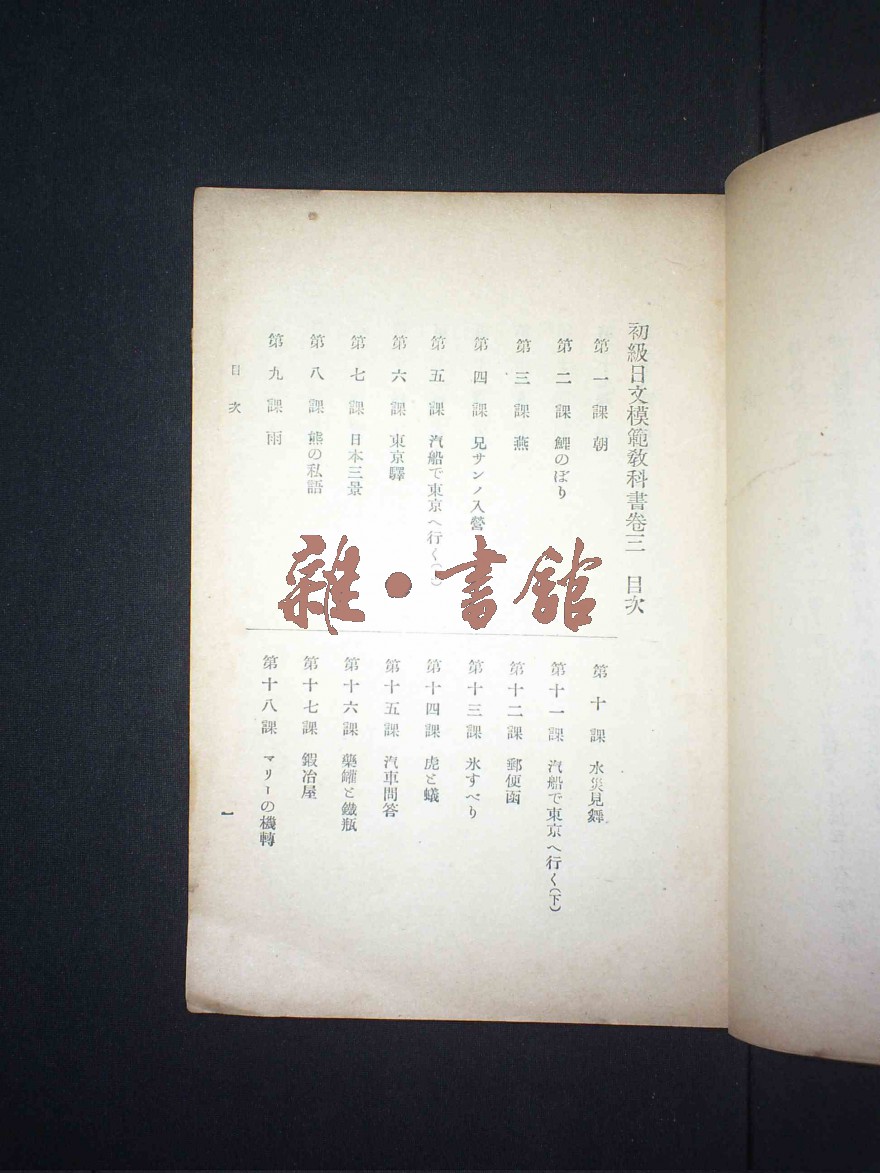 初級日文模範敎科書卷三　目次
第一課　朝
第二課　鯉のぼり
第三課　燕
第四課　兄サンノ入營
第五課　汽船で東京へ行く(上)
第六課　東京驛
第七課　日本三景
第八課　熊の私語
第九課　雨
第十課　水災見舞
第十一課　汽船で東京へ行く(下)
第十二課　郵便函
第十三課　氷すべり
第十四課　虎と蟻
第十五課　汽車問答
第十六課　藥罐と鐵瓶
第十七課　鍛冶屋
第十八課　マリーの機轉
目次
一
雜・書館